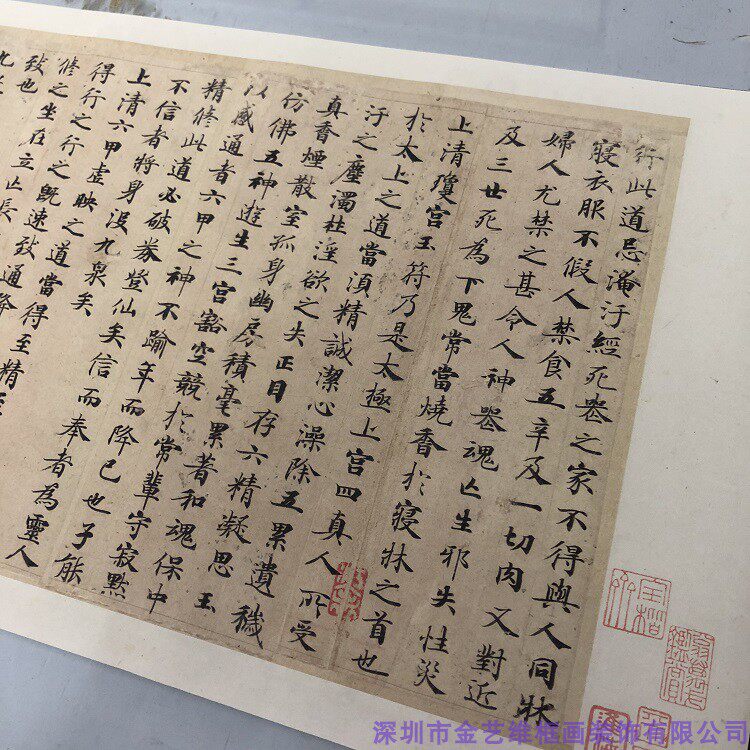 行此道忌淹汙經死喪之家不得與人同牀
寢衣服不假人禁食五辛及一切肉又對近
婦人尤禁之甚令人神喪魂亡生邪失性災
及三世死為下鬼常當燒香於寢牀之首也
上清瓊宮玉符乃是太極上宮四真人所受
於太上之道當須精誠潔心澡除五累遺穢
汙之塵濁杜淫欲之失正目存六精凝思玉
真香煙散室孤身幽房積毫累著和魂保中
仿佛五神遊生三宮豁空競於常輩守寂默
以感通者六甲之神不踰年而降已也子能
精修此道必破券登仙矣信而奉者為靈人
不信者將身沒九泉矣
上清六甲虛映之道當得至精至
得行之行之既速致通降
修之坐在立亡長
致也
九
深圳市金艺维框画装饰有限公司